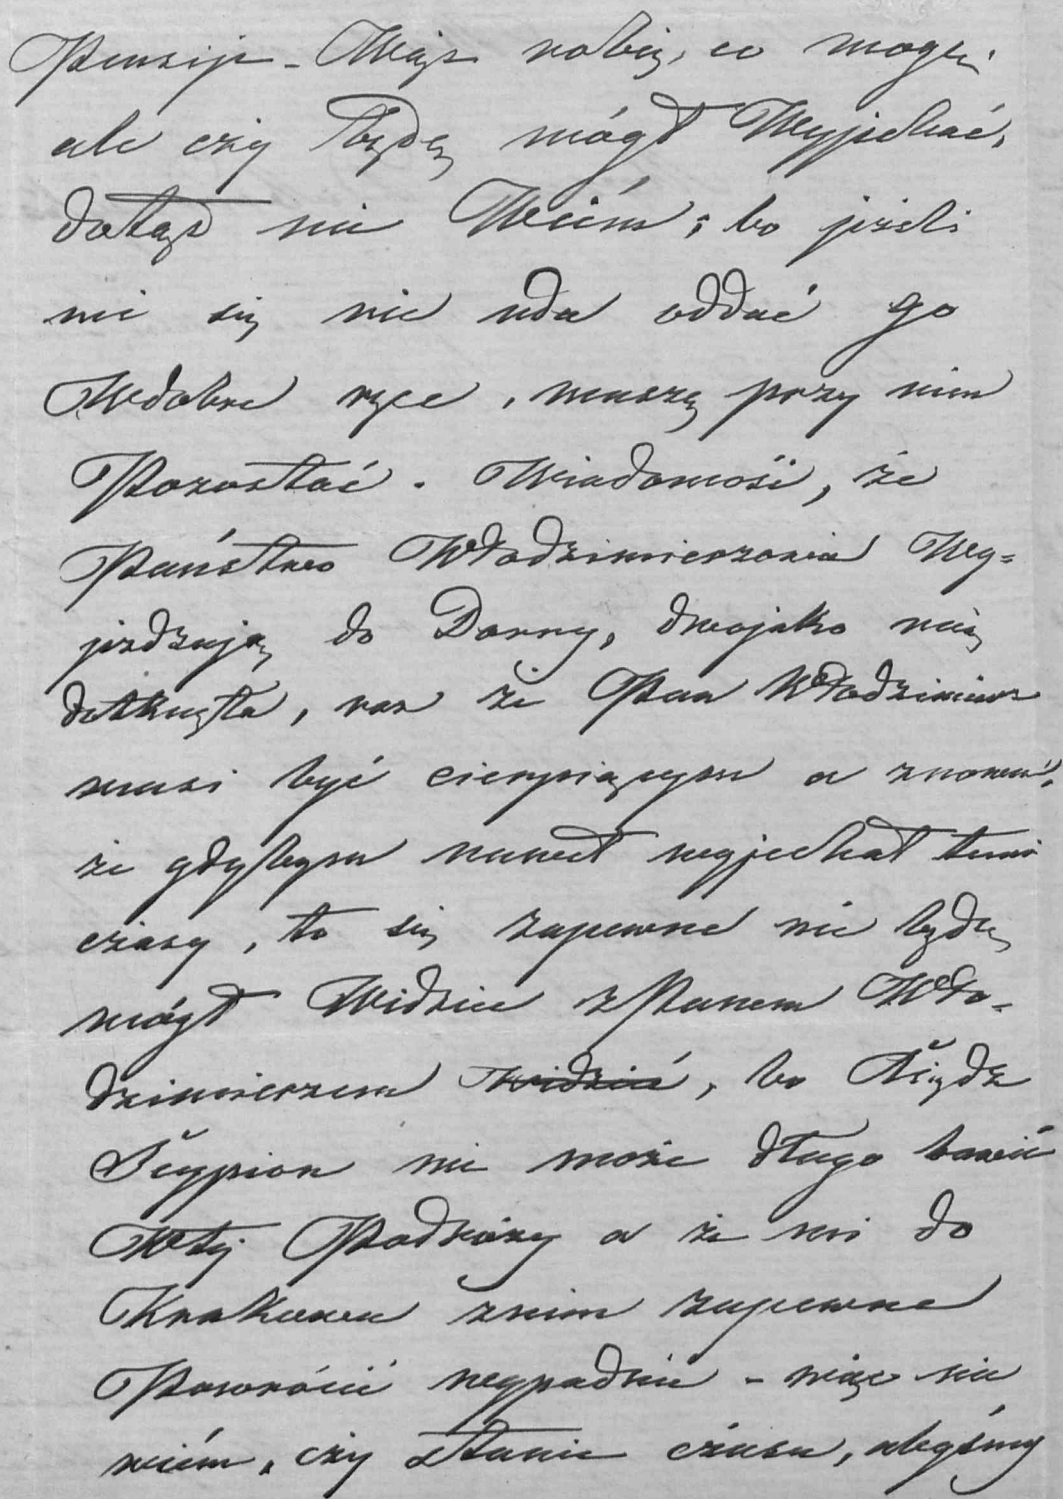 Pensije – Więc robię, co mogę,
ale czy będę mógł Wyjechać,
dotąd nie Wiém; bo jeżeli
mi się nie uda oddać go
Wdobre ręce, muszę przy nim
Pozostać. Wiadomość, że
Państwo Włodzimierzowie Wy=
jeżdżają do Dorny, dwojako mię
dotknęła, raz że Pan Włodzimierz
musi być cierpiącym a znowu,
że gdybym nawet wyjechał temi
czasy, to się zapewne nie będę
mógł Widzieć z Panem Wło-
dzimierzem widzieć, bo Ksiądz
Scypion nie może długo bawić
Wtéj Podróży a że mi do
Krakowa znim zapewne
Powrócić wypadnie – więc nie
wiém, czy stanie czasu, abyśmy